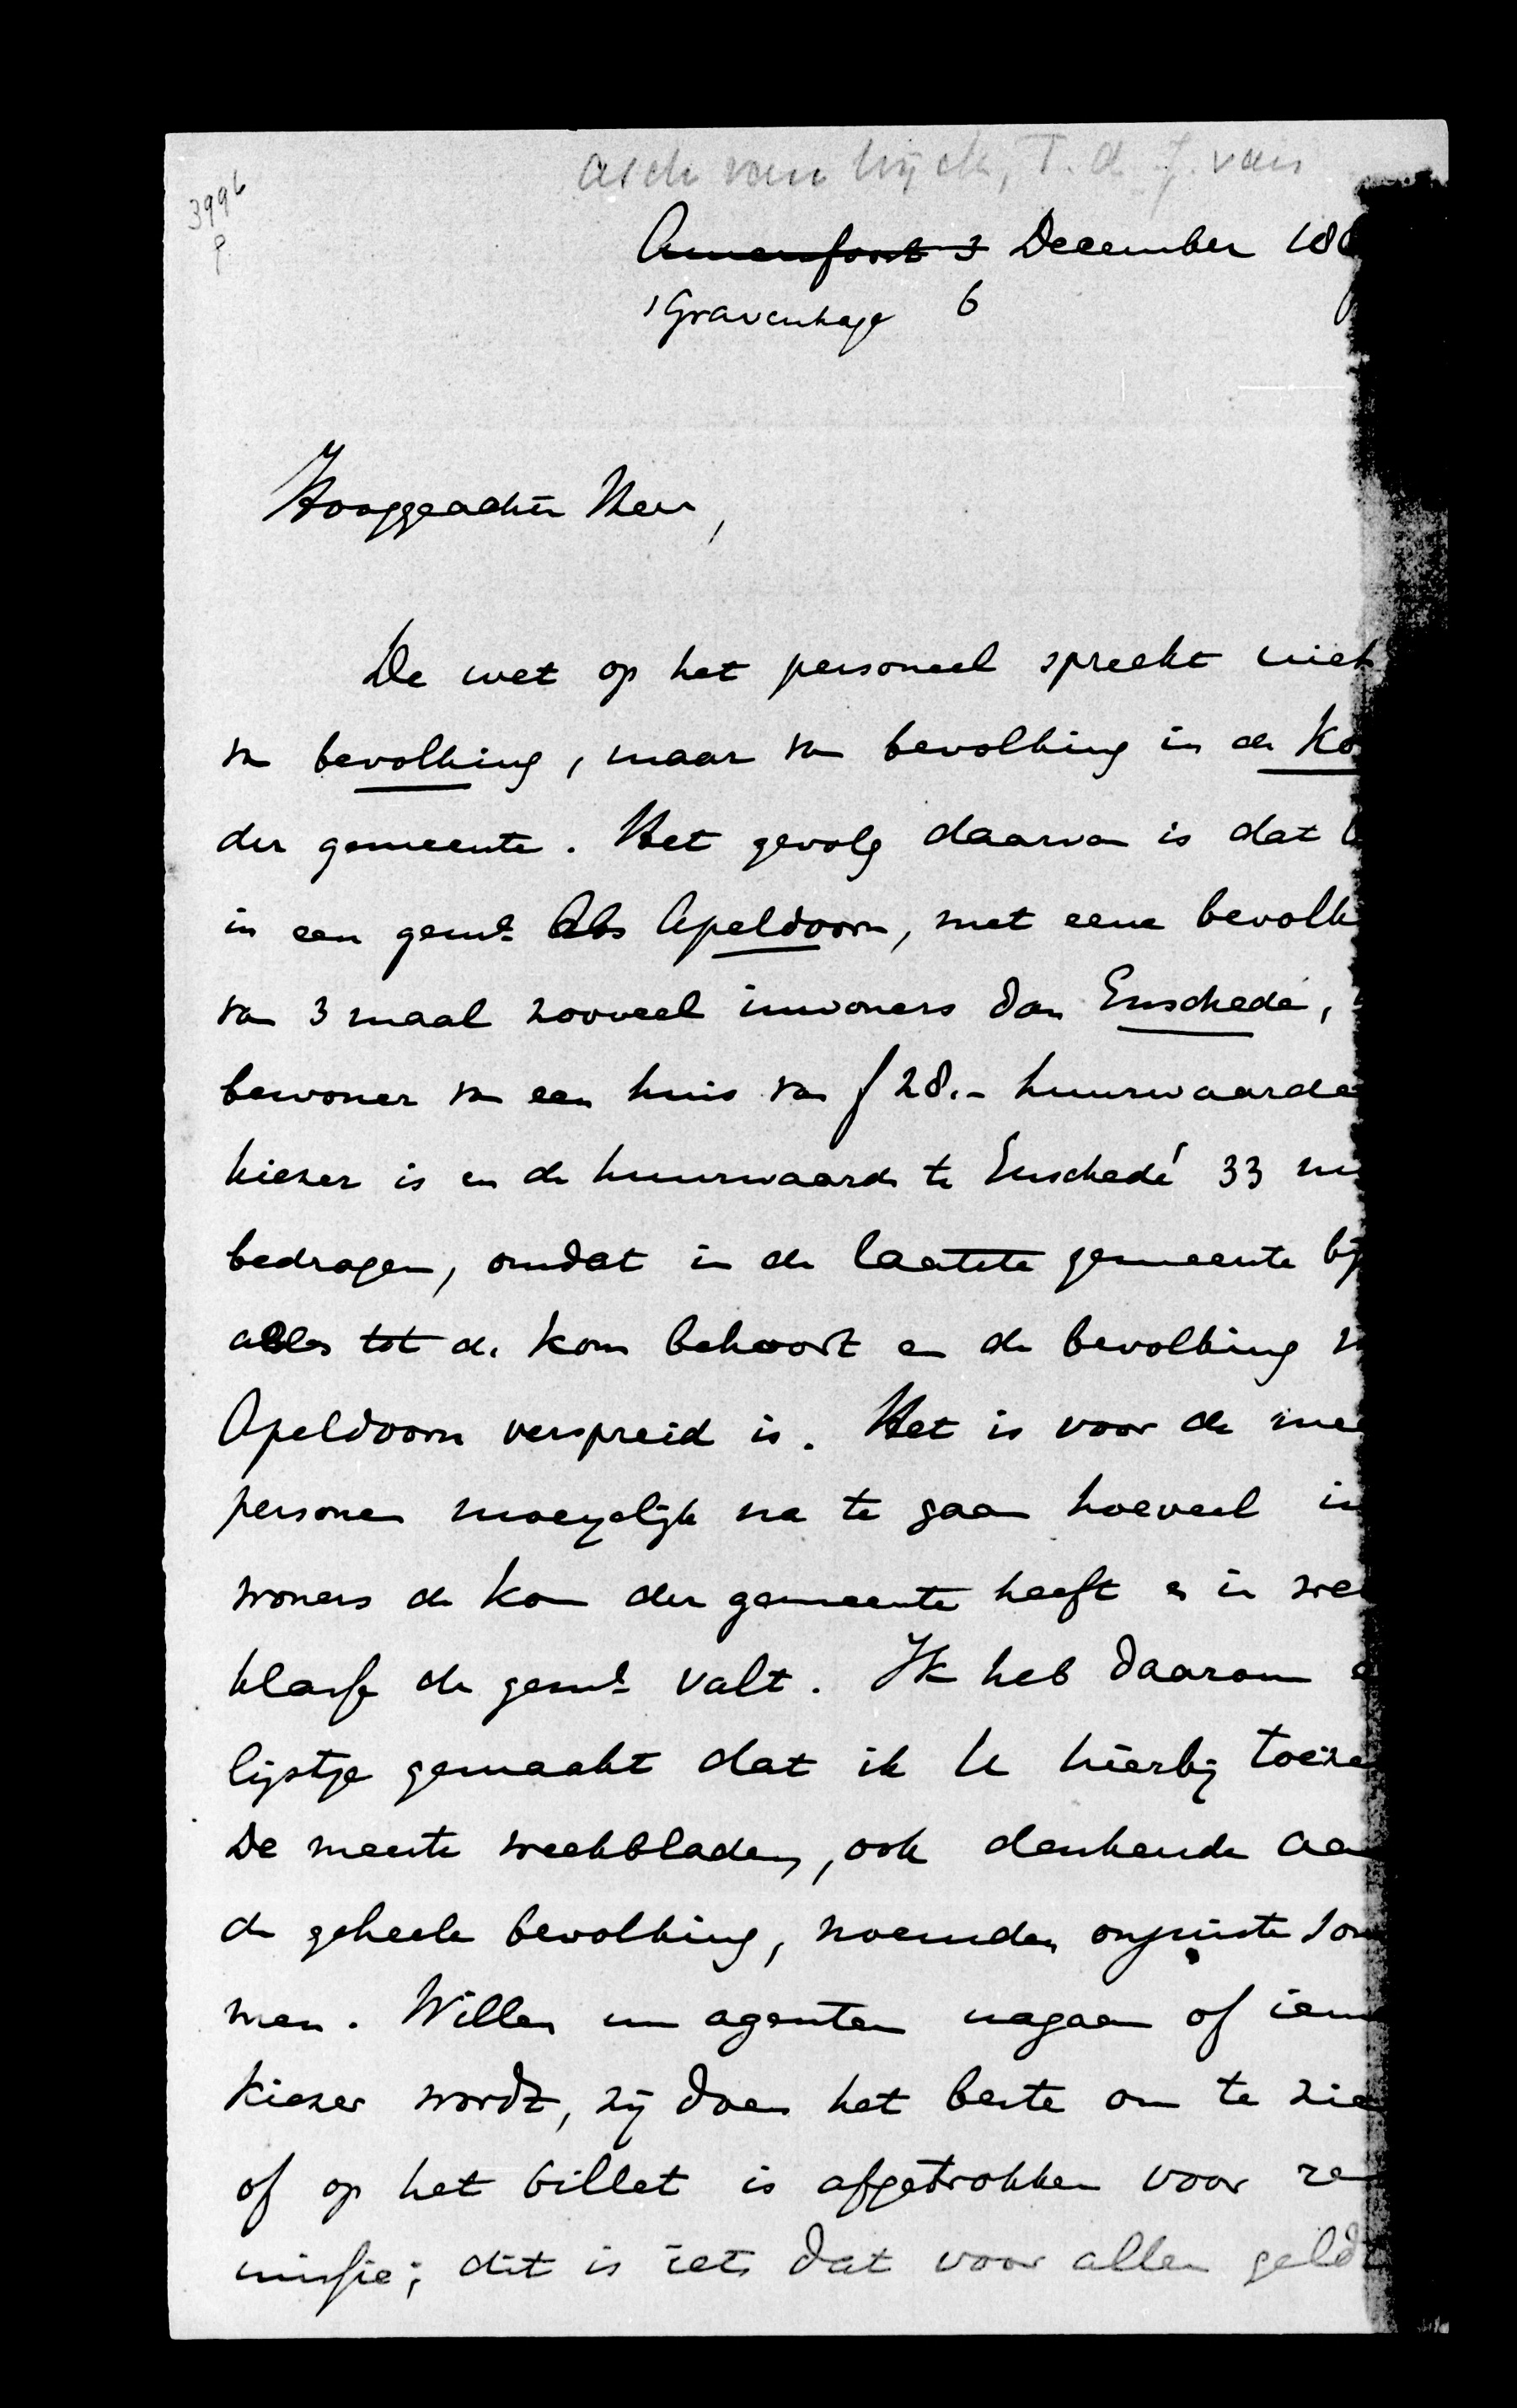 3996
P.
Asch van Wijck, T. A. J. van
Amersfoort 3 December 188
'sGravenhage 6
Hooggeachte Heer,
De wet op het personeel spreekt niet
van bevolking, maar van bevolking in de Ko
der gemeente. Het gevolg daarvan is dat
in een gemte als Apeldoorn, met eene bevolk
van 3 maal zooveel inwoners dan Enschedé,
bewoner van een huis van f 28.- huurwaarde
kiezer is en de huurwaarde te Enschedé 33 m
bedragen, omdat in de laatste gemeente bij
alles tot de kom behoort en de bevolking v
Apeldoorn verspreid is. Het is voor de mee
personen moeyelijk na te gaan hoeveel in
woners de kom der gemeente heeft en in wel
klasse de gemte valt. Ik heb daarom e
lijstje gemaakt dat ik U hierbij toeze
De meeste weekbladen, ook denkende aan
de geheele bevolking, noemden onjuiste som
men. Willen uw agenten nagaan of iem
kiezer wordt, zij doen het beste om te zien
of op het billet is afgetrokken voor re
missie; dit is iets dat voor allen geldt